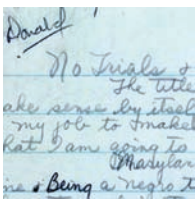 Donald
No Trials &
The title
ake sense by itself
my job to make
hat I am going to
Marylan
ne. Being a negro t